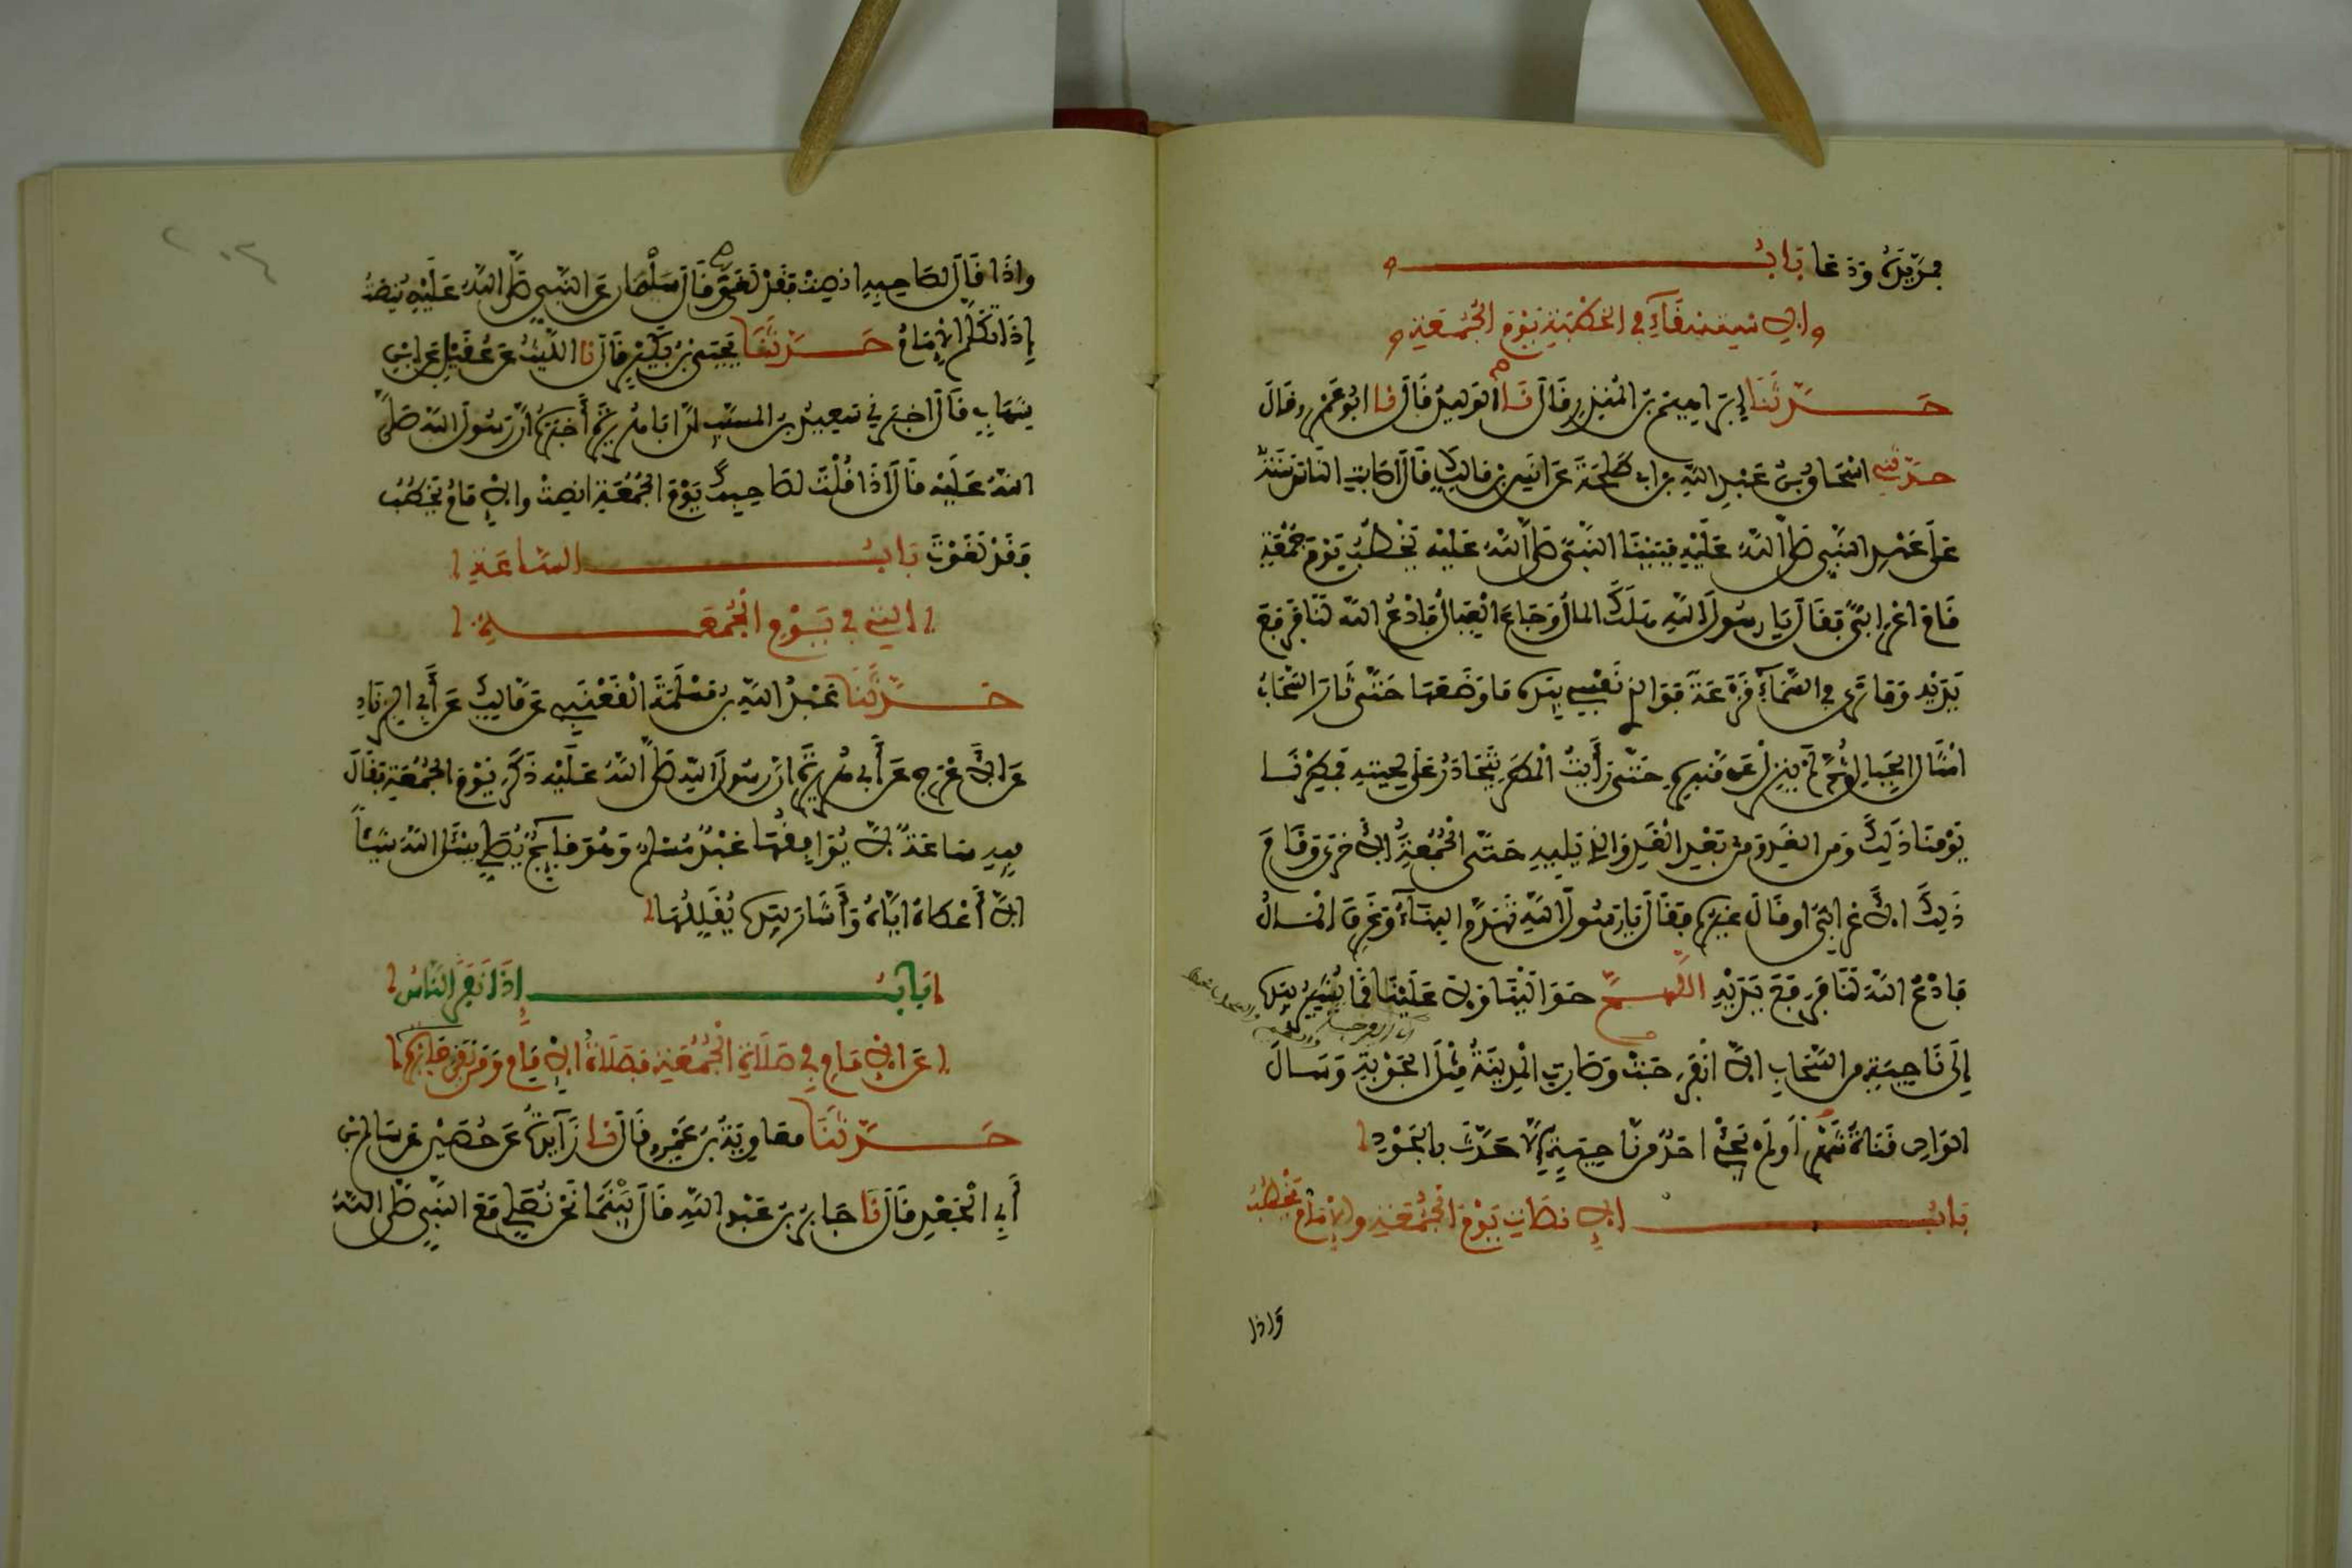 فمد يديه ودعا باب
الاستسقاء في الخطبة يوم الجمعة
حدثنا إبراهيم بن المنذر قال نا الوليد قال نا ابو عمرو قال
حدثني اسحاق بن عبد الله بن ابي طلحة عن انس بن مالك قال اصابت الناس سنة
على عهد النبي صلى الله عليه فبينا النبي صلى الله عليه يخطب يوم جمعة
قام اعرابي فقال يا رسول الله هلك المال وجاع العيال فادع الله لنا فرفع
يديه وما نرى في السماء قزعة فوالذي نفسي بيده ما وضعها حتى ثار السحاب
امثال الجبال ثم لم ينزل عن منبره حتى رأيت المطر يتحادر على لحيته فمطرنا
يومنا ذلك ومن الغد ومن بعد الغد والذي يليه حتى الجمعة الاخرى وقام
ذلك الاعرابي او قال غيره فقال يا رسول الله تهدم البناء وغرق المال
فادع الله لنا فرفع يديه اللهم حوالينا ولا علينا فما يشير بيده
إلى ناحية من السحاب الا انفرجت وصارت المدينة مثل الجوبة وسال
الوادي قناة شهرا ولم يجئ احد من ناحية إلا حدث بالجود
باب الانصات يوم الجمعة والإمام يخطب
واذا
واذا قال لصاحبه انصت فقد لغى وقال سلمان عن النبي صلى الله عليه ينصت
إذا تكلم الإمام حدثنا يحيى بن بكير قال نا الليث عن عقيل عن ابن
شهاب قال اخبرني سعيد بن المسيب ان ابا هريرة أخبره ان رسول الله صلى
الله عليه قال اذا قلت لصاحبك يوم الجمعة انصت والامام يخطب
فقد لغوت باب الساعة
التي في يوم الجمعة
حدثنا عبد الله بن مسلمة القعنبي عن مالك عن أبي الزناد
عن الاعرج عن أبي هريرة ان رسول الله صلى الله عليه ذكر يوم الجمعة فقال
فيه ساعة لا يوافقها عبد مسلم وهو قائم يصلي يسئل الله شيئا
الا أعطاه اياه وأشار بيده يقللها
باب إذا نفر الناس
عن الامام في صلاة الجمعة فصلاة الامام ومن بقي جائزة
حدثنا معاوية بن عمرو قال نا زائدة عن حصين عن سالم بن
أبي الجعد قال نا جابر بن عبد الله قال بينما نحن نصلي مع النبي صلى الله